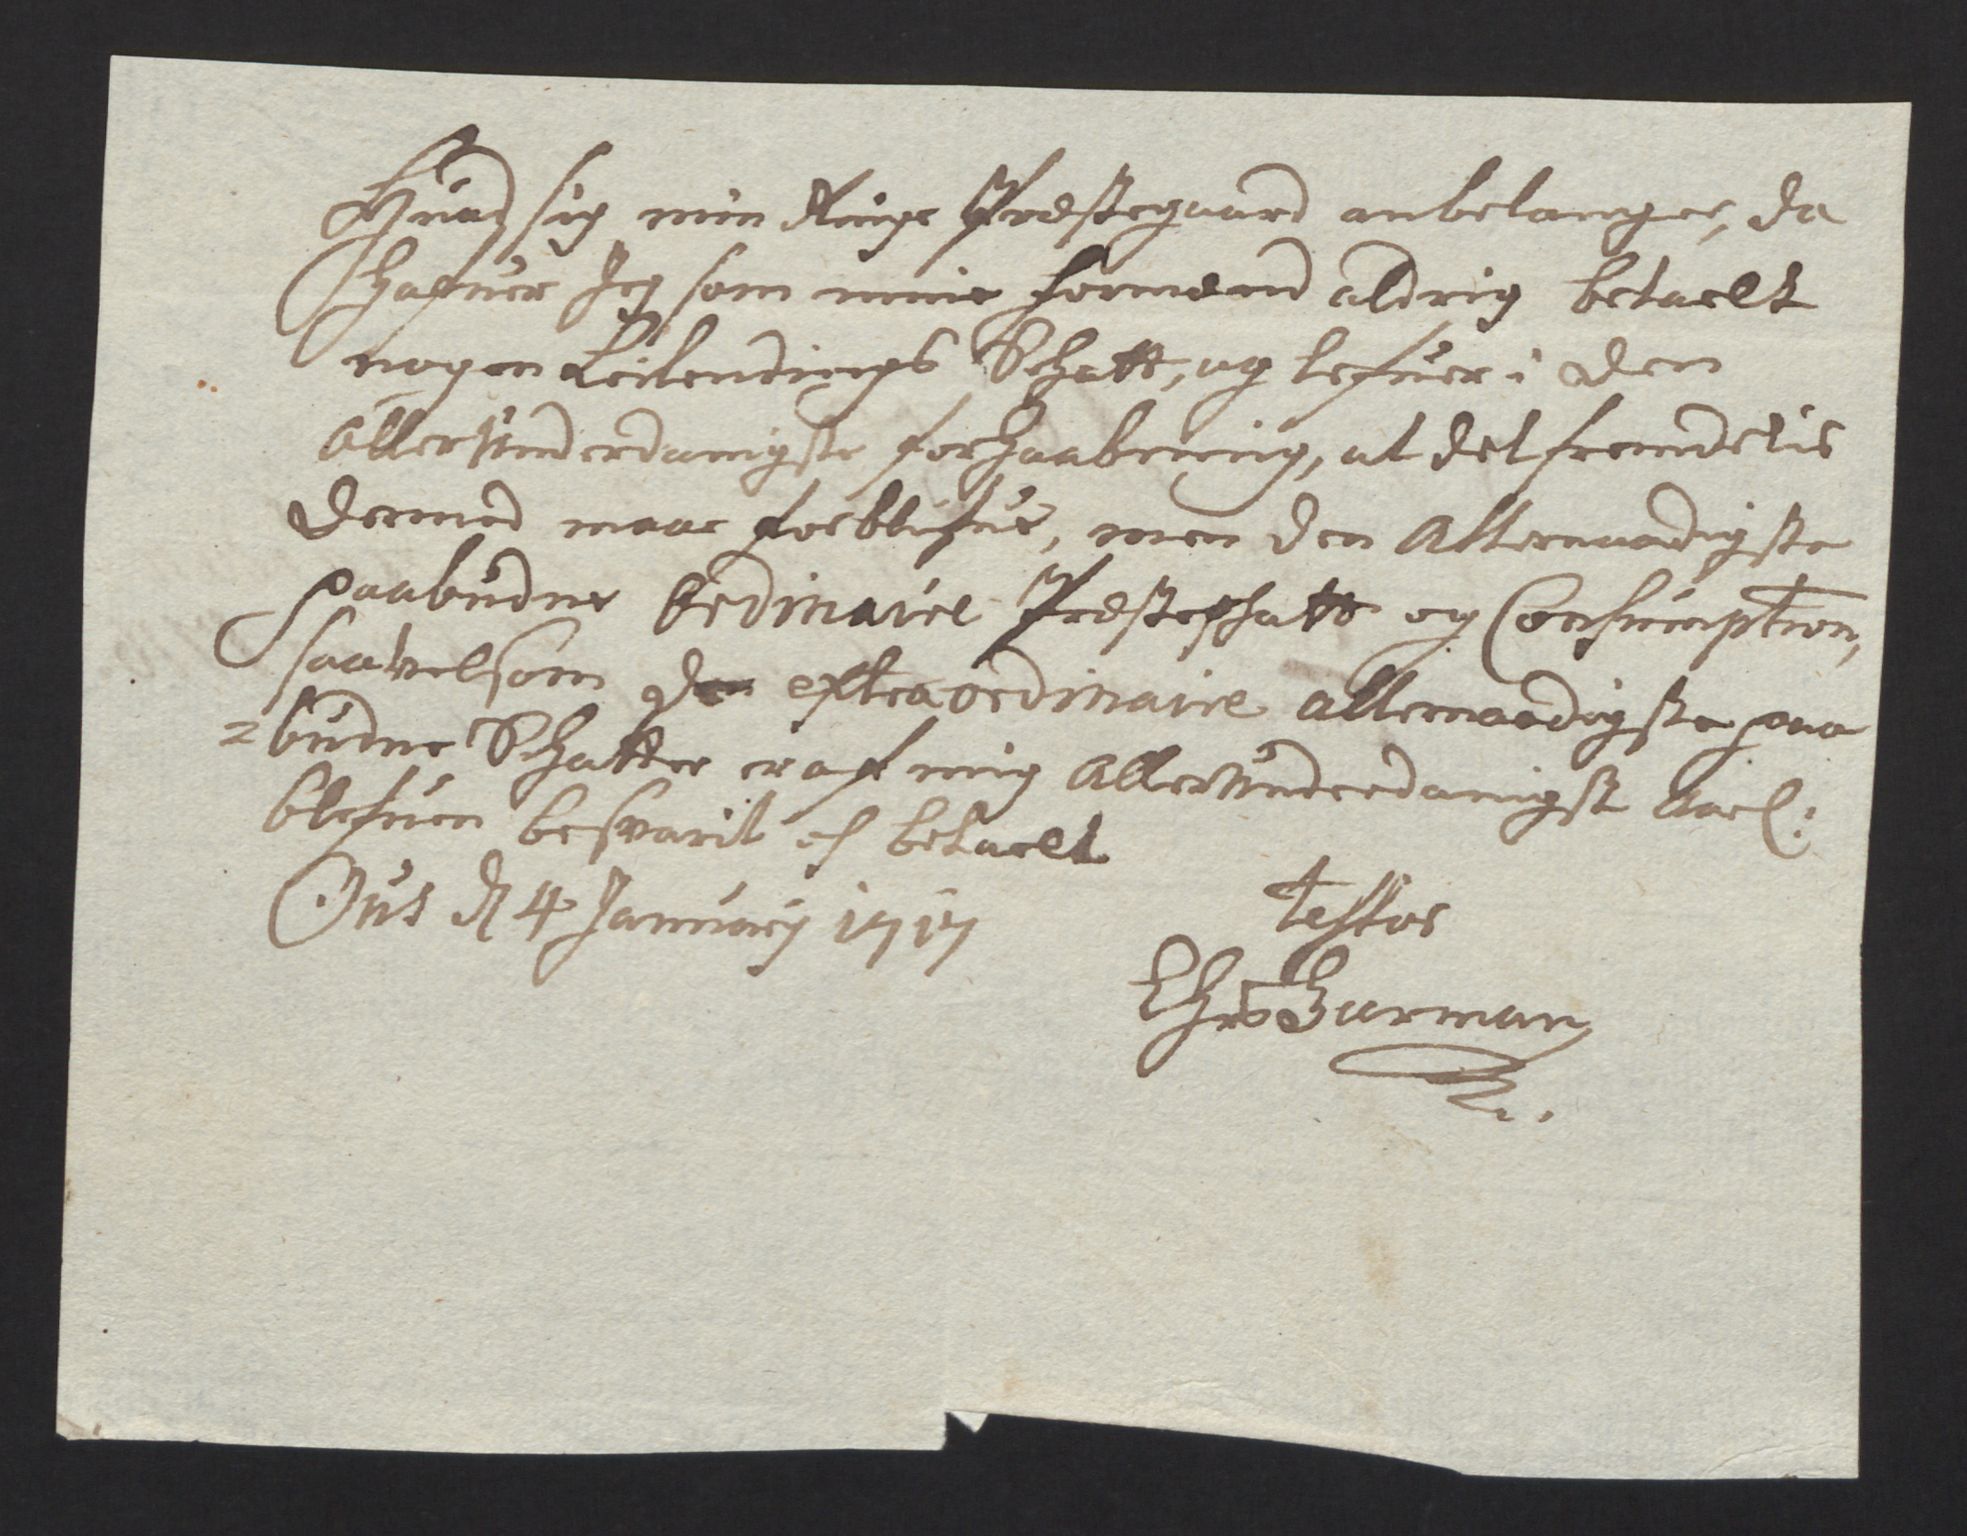 Hvad sig min Ringe Præstegaard anbelanger, da
hafuer Jeg som mine formænd aldrig betaelt
nogen Leilendings Schatt, og lefuer i den
Allerunderdanigste forhaabning, at det fremdelis
dermed maae forblifue, men den Allernaadigste
paabudne Ordinaire Præsteschatt og Consumption,
saavelsom de extraordinaire allernaadigste paa
=budne Schatter er af mig Allerunderdanigst
blefuen besvarit og betaelt
Ous d 4 January 1717
Testor
Chr Garman